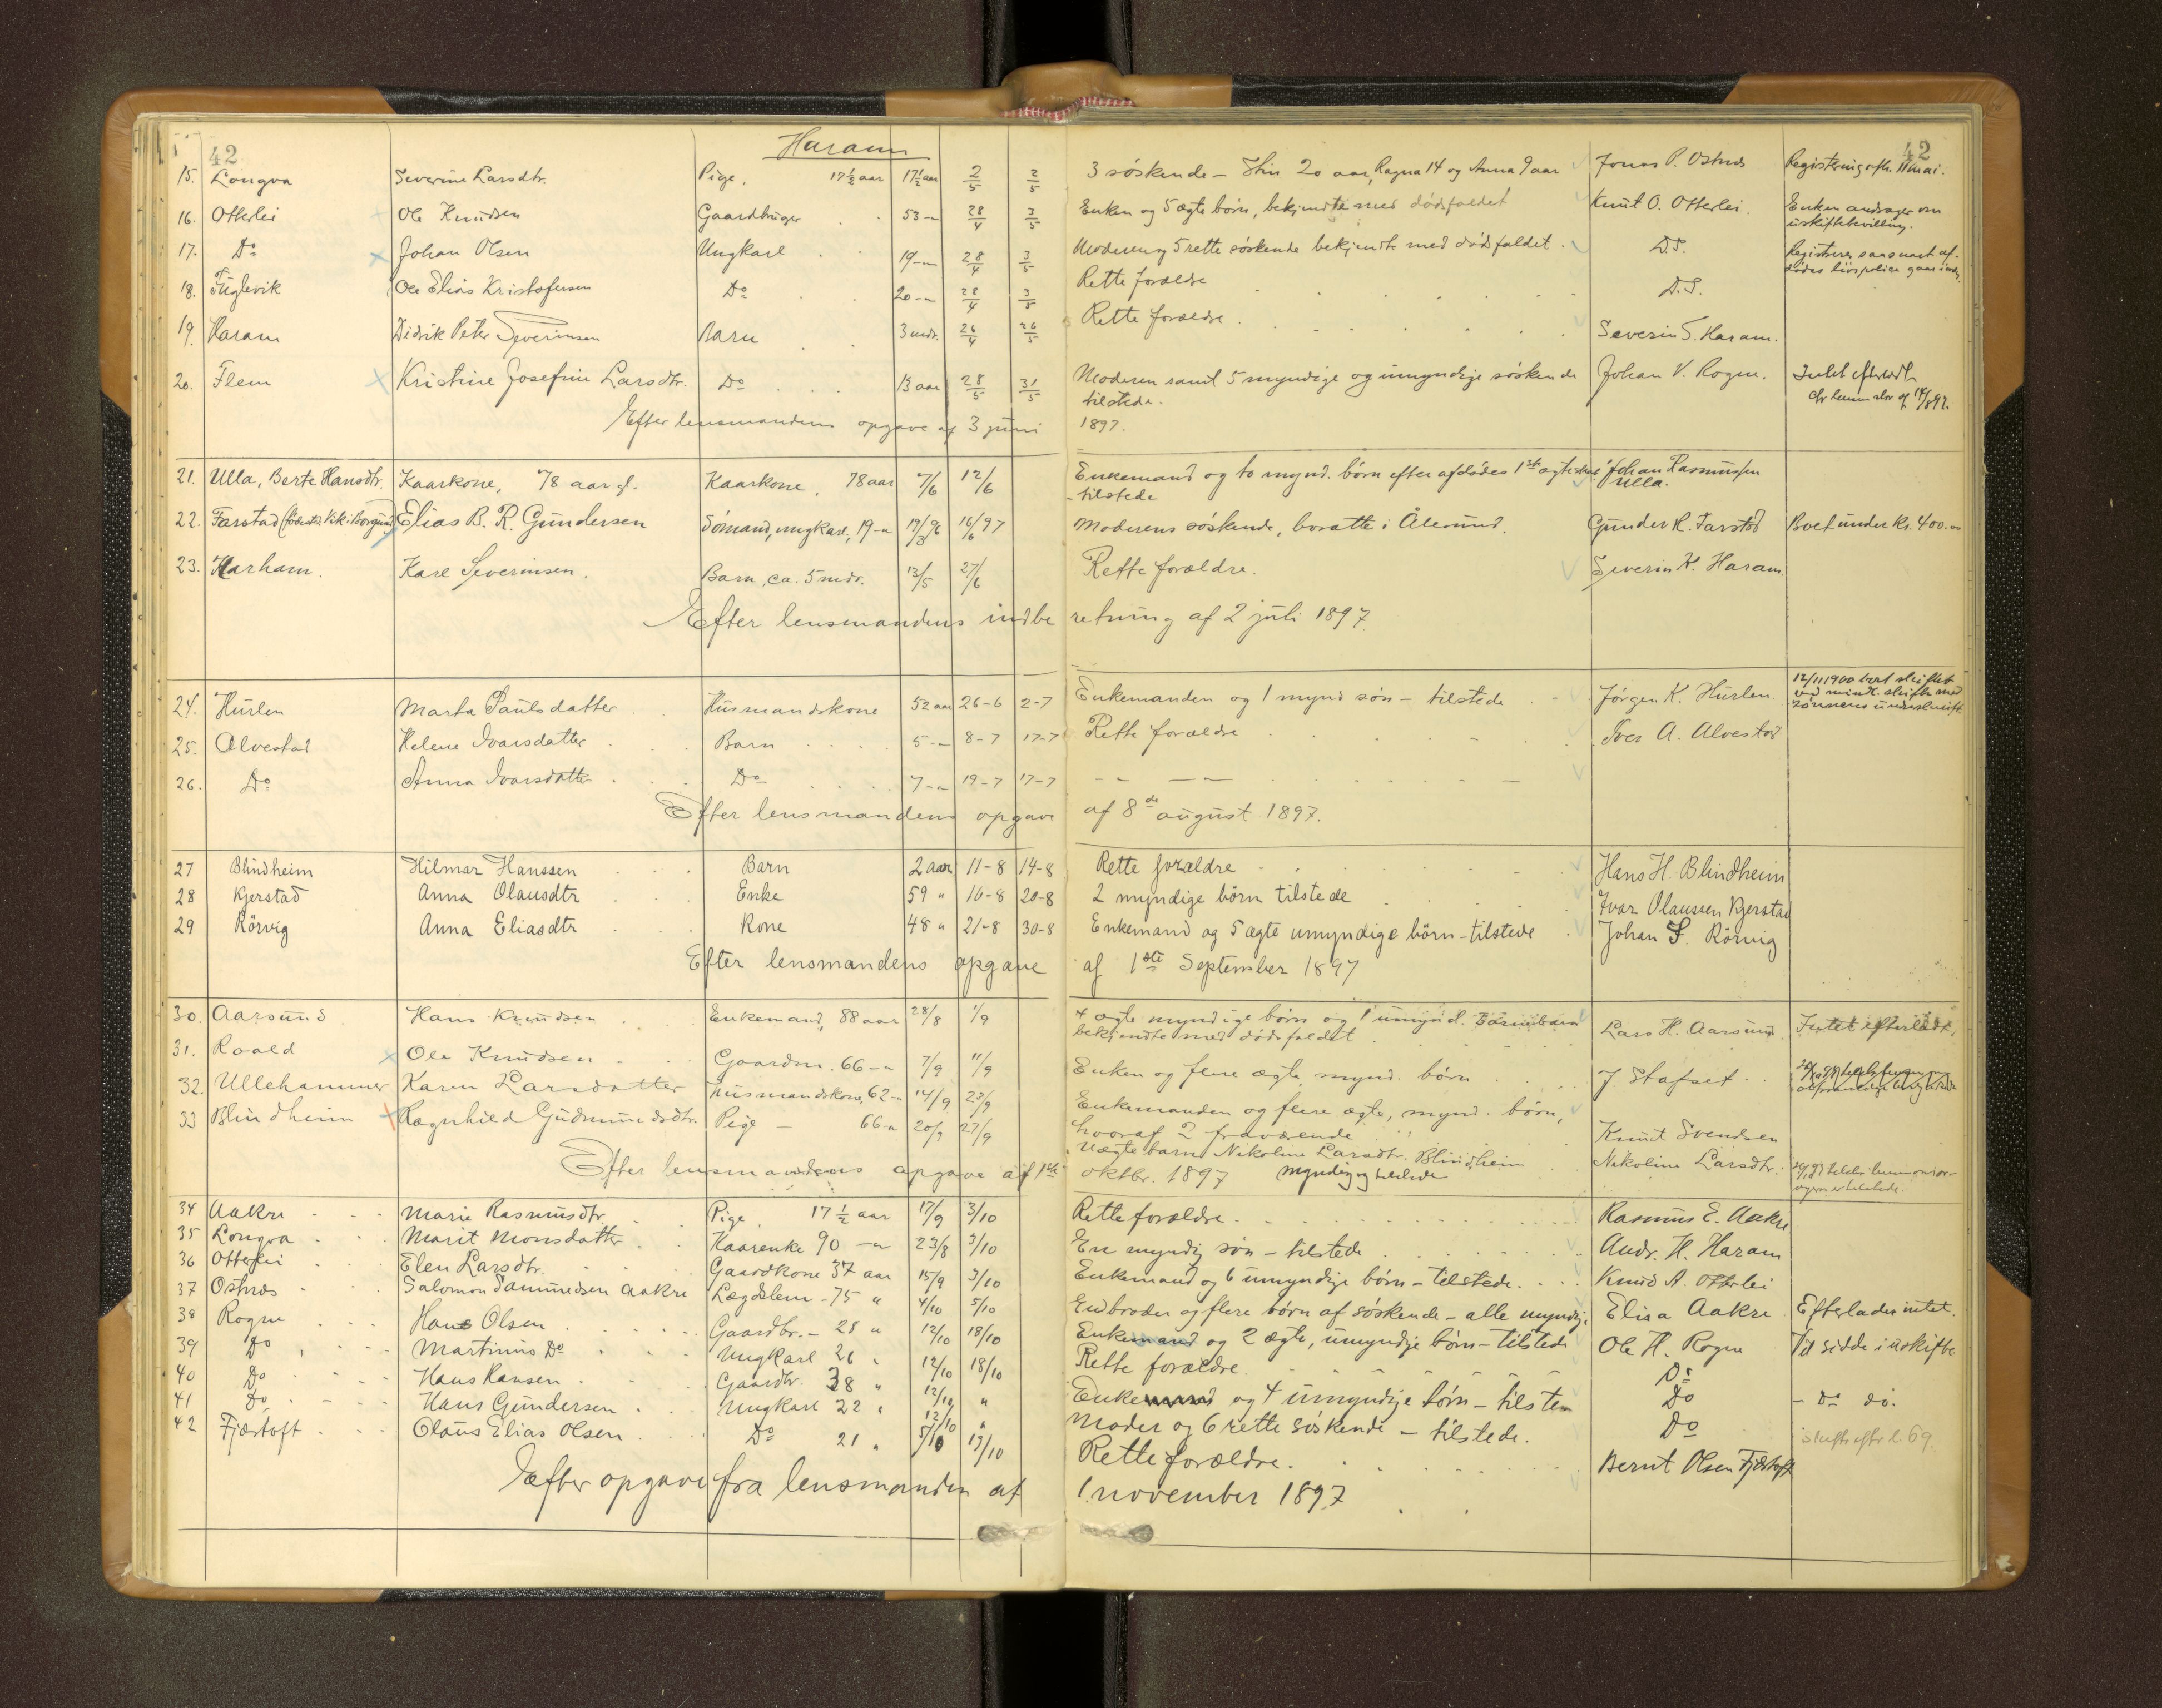 42
Haram
42
15. Longva Severine Larsdtr. Pige, 17½ aar 17½ aar 2/5 2/5 3 söskende - Stin 20 aar, Ragna 14 og Anna 9 aar Jonas P. Östnæs Registering afh. 11 mai.
16. Otterlei Ole Knudsen Gaardbruger 53 -"- 28/4 3/5 Enken og 5 ægte börn, bekjendte med dödsfaldet Knut O. Otterlei. Enken andrager om
uskiftebevilling.
17. Do Johan Olsen Ungkarl 19 -"- 28/4 3/5 Moderen og 5 rette söskende bekjendt med dödsfaldet. D.S. Registreres saasnart af-
dödes livspolice gaar ind.
18. Fuglevik Ole Elias Kristofersen Do 20 -"- 28/4 3/5 Rette forældre D.S.
19. Haram Didrik Peter Severinsen Barn 3 mdr. 26/4 26/5 Rette forældre Severin S. Haram.
20. Flem Kristine Josefine Larsdtr. Do 13 aar 28/5 31/5 Moderen samt 5 myndige og umyndige söskende Johan V. Rogne. Intet efterladt
tilstede.
Efter lensmandens opgave af 3 juni 1897.
21. Ulla, Berte Hansdtr. Kaarkone, 78 aar gl. Kaarkone, 78 aar 7/6 12/6 Enkemand og to mynd. börn efter afdödes 1ste ægteskab Johan Rasmussen
- tilstede Ulla.
22. Farstad (födested Vik i Borgund) Elias B. R. Gundersen Sömand, ungkarl, 19 -"- 19/3 96 16/6 97 Moderens söskende, bosatte i Ålesund. Gunder R. Farstad Boet under kr. 400.00
23. Harham. Karl Severinsen. Barn, ca. 5 mdr. 13/5 27/6 Rette forældre. Severin K. Haram.
Efter lensmandens indberetning af 2 juli 1897.
24. Hurlen Marta Paulsdatter Husmandskone 52 aar 26-6 2-7 Enkemanden og 1 mynd sön - tilstede Jörgen K. Hurlen. 12/11 1900 boet skiftet
ved mindl. skifte med
sönnens underskrift
25. Alvestad Helene Ivarsdatter Barn 5 -"- 8-7 17-7 Rette forældre Iver A. Alvestad
26. Do Anna Ivarsdatter Do 7 -"- 19-7 17-7 -"- -"-
Efter lensmandens opgave af 8de august 1897.
27 Blindheim Hilmar Hanssen Barn 2 aar 11-8 14-8 Rette forældre Hans H. Blindheim
28 Kjerstad Anna Olausdtr Enke 59 " 16-8 20-8 2 myndige börn tilstede Ivar Olaussen Kjerstad
29 Rörvig Anna Eliasdtr Kone 48 " 21-8 30-8 Enkemand og 5 ægte umyndige börn - tilstede Johan S. Rörvig
Efter lensmandens opgave af 1ste September 1897
30. Aarsund Hans Knudsen Enkemand, 88 aar 28/8 1/9 4 ægte myndige börn og 1 umynd. barnebarn Lars H. Aarsund Intet efterladt.
bekjendte med dödsfaldet
31. Roald Ole Knudsen Gaardm. 66 -"- 7/9 11/9 Enken og flere ægte, mynd. börn J. Stafset.
32. Ullehammer Karen Larsdatter Husmandskone, 62 -"- 14/9 27/9 Enkemanden og flere ægte, mynd. börn,
hvoraf 2 fraværende Knud Svendsen
33 Blindheim Ragnhild Gudmundsdtr. Pige - 66 -"- 20/9 27/9 Uægte barn Nikoline Larsdtr. Blindheim Nikoline Larsdtr.
myndig og tilstede
Efter lensmandens opgave af 1ste oktbr. 1897
34 Aakre Marie Rasmusdtr. Pige, 17½ aar 17/9 3/10 Rette forældre. Rasmus E. Aakre
35 Longva Marit Monsdatter Kaarenke 90 -"- 23/8 3/10 En myndig sön - tilstede Andr. H. Haram
36 Otterlei Elen Larsdtr. Gaardkone 37 aar 15/9 3/10 Enkemand og 6 umyndige börn - tilstede. Knud A. Otterlei
37 Östnæs Salomon Samuelsen Aakre Lægdslem - 75 " 4/10 5/10 En broder og flere börn af söskende - alle myndige Elias Aakre Efterlader intet.
38 Rogne Hans Olsen Gaardbr. - 28 " 12/10 18/10 Enkemand og 2 ægte, umyndige börn - tilstede Ole H. Rogne Vil sidde i uskifte
39 Do Martinus Do Ungkarl 26 " 12/10 18/10 Rette forældre. Do
40 Do Hans Hansen Gaardbr. 38 " 12/10 " Enkemand og 4 umyndige börn - tilstede Do - Do do.
41 Do Hans Gundersen Ungkarl 22 " 12/10 " Moder og 6 rette söskende - tilstede. Do
42 Fjærtoft Olaus Elias Olsen Do 21 " 5/10 19/10 Rette forældre. Bernt Olsen Fjærtoft
Efter opgave fra lensmanden af 1. november 1897